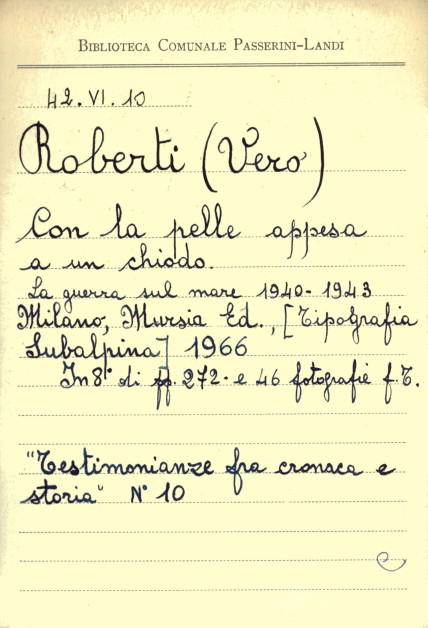 BIBLIOTECA COMUNALE PASSERINI-LANDI
42. VI. 10
Roberti (Vero)
Con la pelle appesa
a un chiodo.
La guerra sul mare 1940-1943
Milano, Mursia Ed., [Tipografia
Subalpina] 1966
In 8° di pp. 272. e 46 fotografie f.T.
"Testimonianze fra cronaca e
storia" N° 10